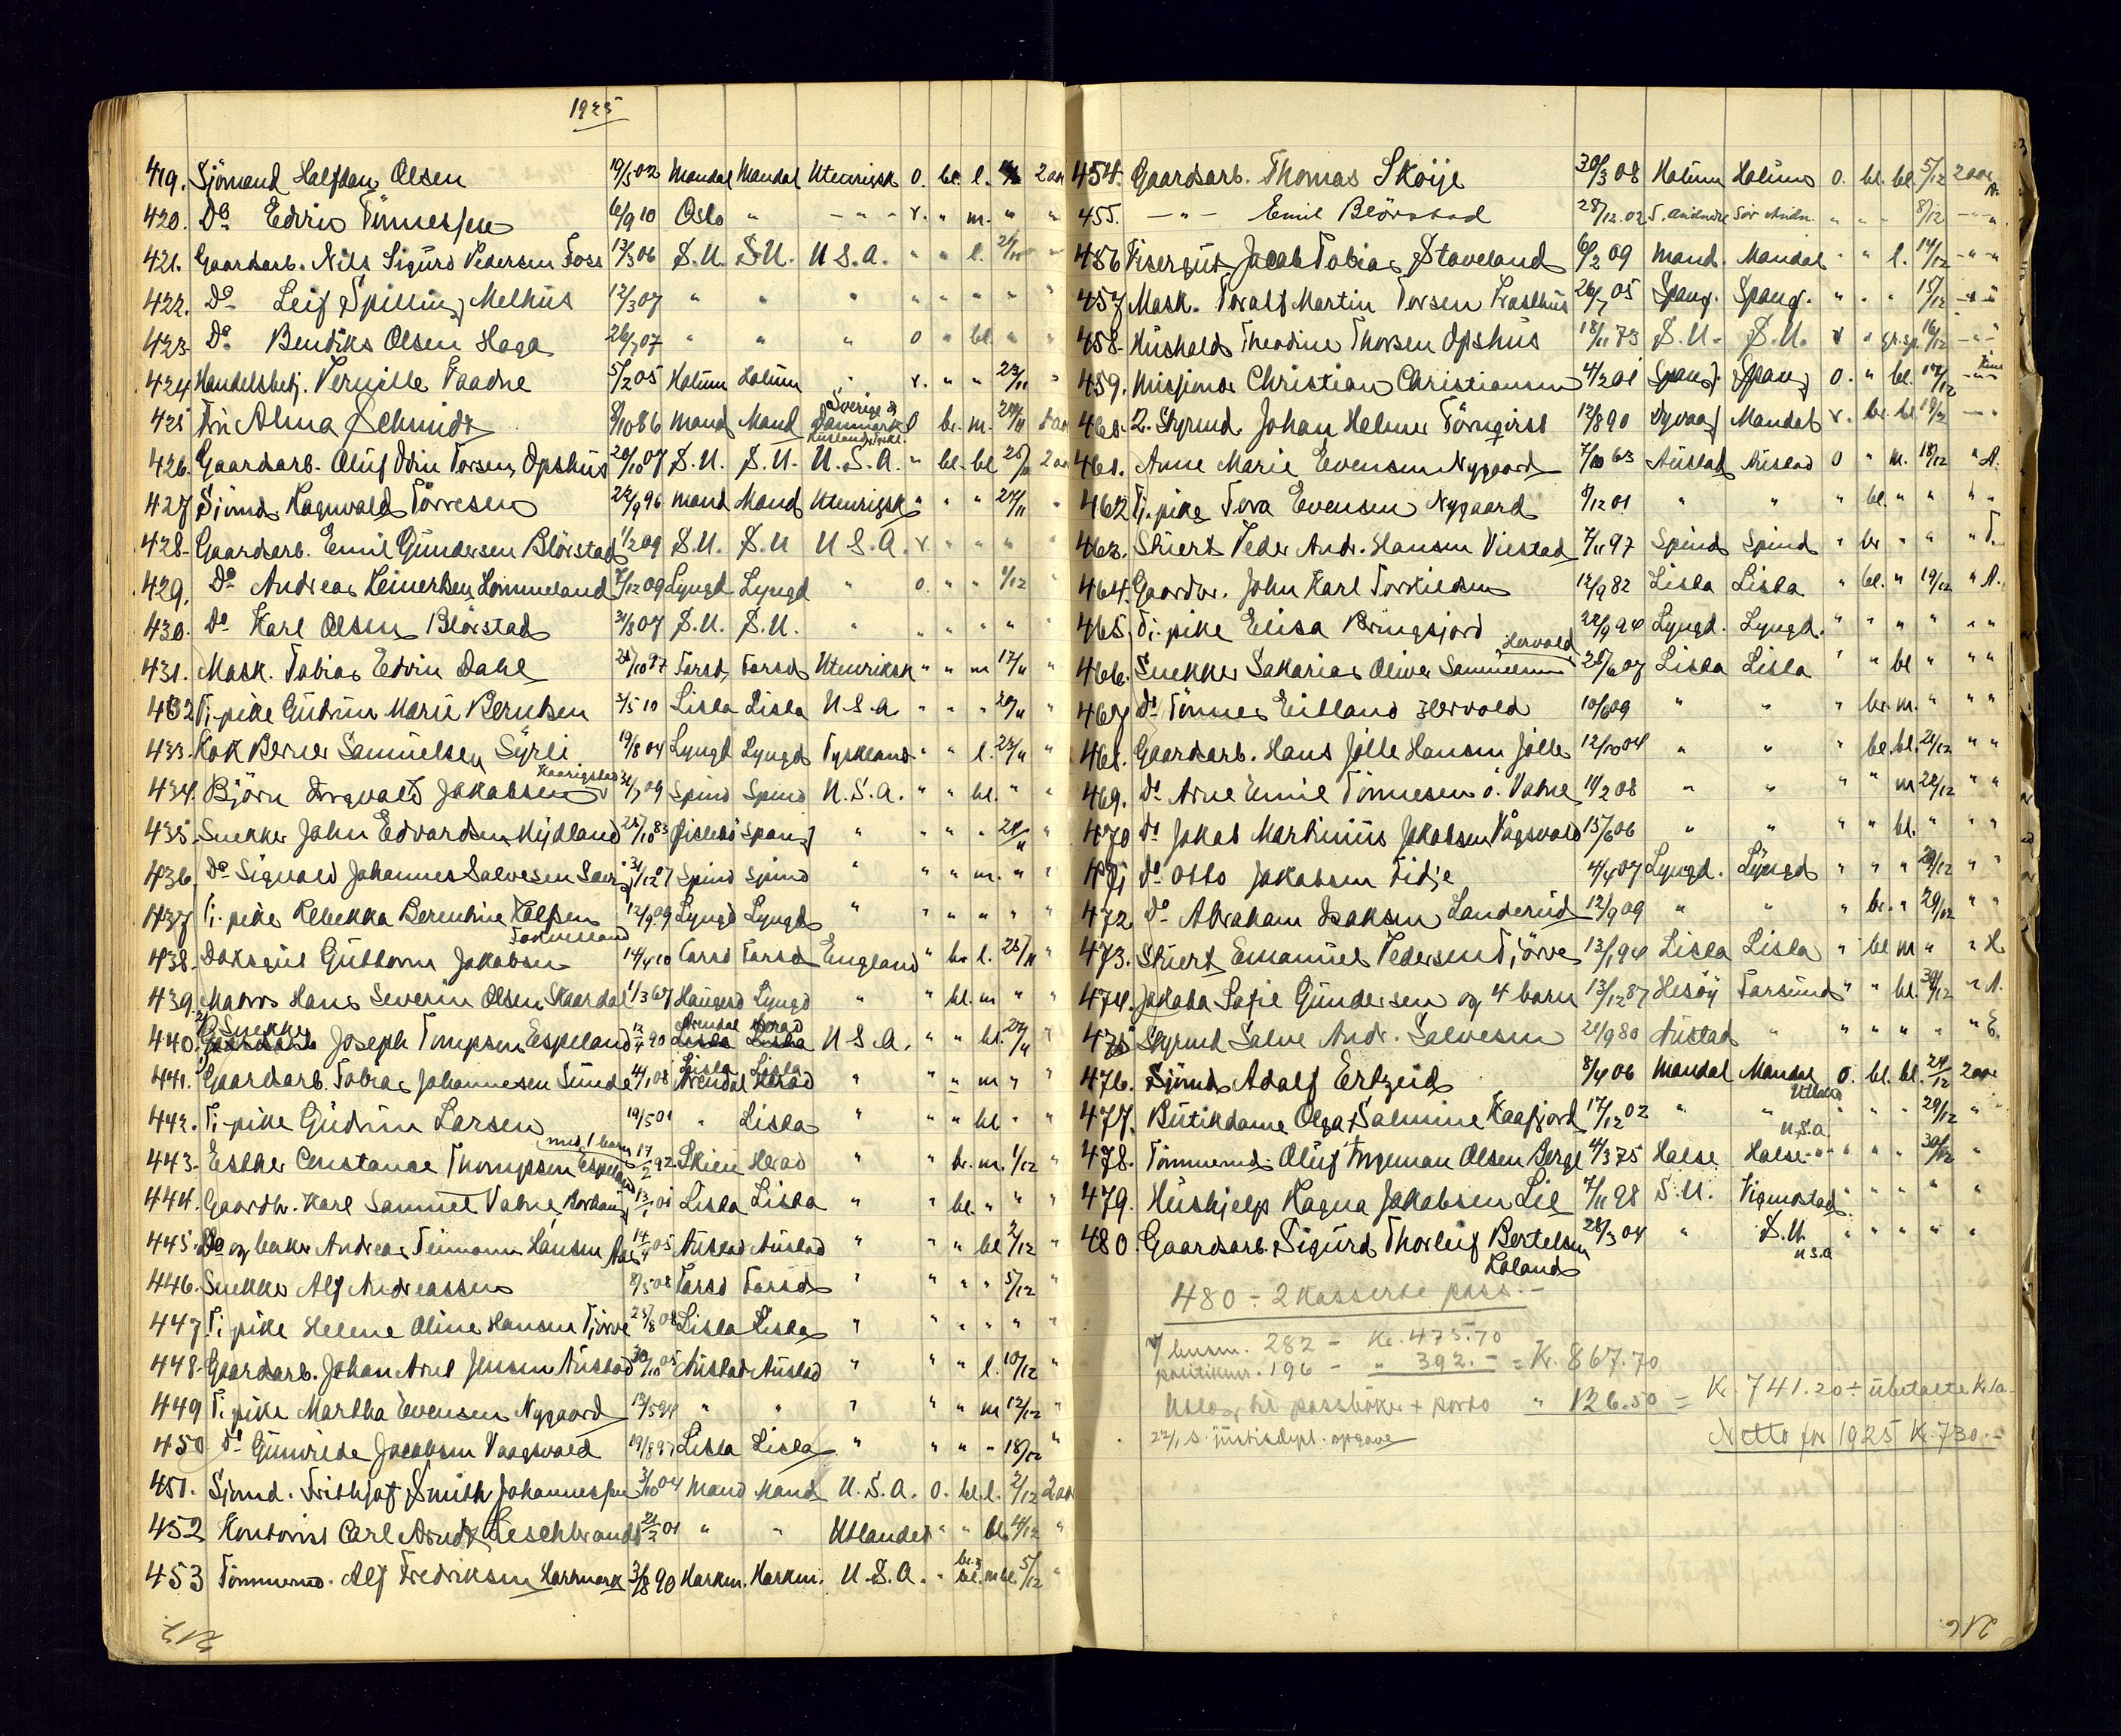 1925
419. Sjömand Halfdan Olsen 19/5 02 Mandal Mandal Utenrigsk O. bl. l. 2 aar
420. Do Edvin Tönnessen 6/9 10 Oslo " - " - r. " m. " "
421. Gaardarb. Nils Sigurd Pedersen Foss 13/3 06 S.U. S.U. U.S.A. " " l. "
422. Do Leif Spilling Melhus 12/3 07 " " " " " " " "
423. Do Bendiks Olsen Haga 26/7 07 " " " O " bl. " "
424 Handelsbetj. Pernille Faadne 5/2 05 Holum Holum " r. " " 23/11 "
425 Fru Alma Schmidt 8/10 86 Mand Mand Sverige og Danmark br. m. 24/11
426. Gaardarb. Oluf Odin Torsen Opshus 20/10 07 S.U. S.U. U.S.A. " bl. bl 25/11 2 aar
427 Sjömd. Ragnvald Törresen 22/9 96 Mand Mand Utenrigsk " " " 27/11 "
428. Gaardarb. Emil Gundersen Blörstad 1/2 09 S.U. S.U U.S.A. r. " " " "
429. Do Andreas Reinertsen Hommeland 7/12 09 Lyngd Lyngd " O. " " 1/12 "
430. Do Karl Olsen Blörstad 31/8 07 S.U. S.U. " " " " " "
431. Mask. Tobias Edvin Dahl 28/10 97 Farsd. Farsd Utenriksk " " m 17/11 "
432 Tj. pike Gudrun Marie Berntsen 3/5 10 Lista Lista U.S.A. " " " 20/11 "
433. Kok Berner Samuelsen Syrli 19/8 04 Lyngd Lyngd Tyskland " " l. 23/11 "
434. Björn Ingvald Jakobsen Kaarigstad 31/7 09 Spind Spind U.S.A. " " bl. " "
435. Snekker John Edvardsen Mydland 25/10 83 Fislebö Spang " " " " 24/11 "
436. Do Sigvald Johannes Salvesen 31/12 07 Spind Spind " " " m. " "
437 Tj. pike Rebekka Berentine Rolfsen 12/9 09 Lyngd Lyngd " " " " " "
438. Guttorm Jakobsen 14/4 10 Farsd Farsd England " br l. 25/11 "
439. Matros Hans Severin Olsen Skaardal 1/3 67 Haugesd Lyngd " " bl. m " "
440. Snekker Joseph Tompsen Espeland 90 Arendal Herad U S A. " " bl. 27/11 "
441. Gaardarb. Tobias Johannesen Sunde 4/1 08 Lista Lista " " " m " "
442. Tj. pike Gudrun Larsen 19/5 01 " Lista " " " bl " "
443. Esther Constance Thompsen Espeland med 1 barn 17/2 92 Skien Herad " " br. m. 1/12 "
444. Gaardbr. Karl Samuel Vatne 01 Lista Lista " " bl. " " "
445. Do og baker Andreas Teimann Hansen Aas 05 Austad Austad " " " bl 2/12 "
446. Snekker Alf Andreassen 8/5 08 Farsd Farsd " " " " 5/12 "
447 Tj. pike Helene Oline Hansen Tjörve 25/8 08 Lista Lista " " " " " "
448. Gaardarb. Johan Arnt Jensen Austad 30/10 05 Austad Austad " " " l. 10/12 "
449 Tj. pike Martha Evensen Nygaard 13/5 94 " " " " " m 12/12 "
450 Do Gunvalde Jacobsen Vaagsvold 19/8 97 Lista Lista " " " " 18/12 "
451. Sjömd. Frithjof Smith Johannessen 3/10 04 Mand Mand U.S.A. O. bl. l. 2/12 2 aar
452 Kontorist Carl Arndt Leschbrandt 21/2 01 " " Utlandet " " bl. 4/12 "
453 Tömmermd. Alf Fredriksen Harkmark 3/8 90 Harkm. Harkm. U.S.A. " m bl. 5/12 "
217.
454. Gaardsarb. Thomas Skoije 30/3 08 Holum Holum O. bl. bl. 5/12 2 aar
455. - " - Emil Blörstad 28/12 02 S. Audnedl Sör Audn. " " " 8/12 - " -
456 Visergut Jacob Tobias Staveland 6/2 09 Mand. Mandal " " l. 14/12 - " -
457 Mask. Toralf Martin Torsen Trosthus 26/7 05 Spang. Spang. " " " 15/12 - " -
458. Hushold. Theodine Thorsen Opshus 18/11 73 S.U. S.U. r " gr.sp. 16/12 - " -
459. Misjonær Christian Christiansen 4/2 01 Spang. Spang O. " bl. 17/12 Kina
460. 2. Styrmd. Johan Helmer Törnqvist 12/8 90 Dypvaag Mandal r. br. bl. 19/12 - "
461. Anne Marie Evensen Nygaard 7/10 63 Austad Austad O " m. 18/12 " A.
462 Tj. pike Tora Evensen Nygaard 8/12 01 " " " bl. " " " "
463. Stuert Peder Andr. Hansen Viestad 7/11 97 Spind Spind " br " " " T.
464. Gaardbr. John Karl Torkildsen 12/9 82 Lista Lista " bl. " 19/12 " A.
465. Tj. pike Elisa Bringsjord 22/9 94 Lyngd. Lyngd. " " " " " "
466. Snekker Sakarias Oliver Samuelsen Hervold 25/6 07 Lista Lista " " bl " " "
467 Do Tönnes Eitland Hervold 10/6 09 " " " br. m. " " "
468. Gaardarb. Hans Jölle Hansen Jölle 12/10 04 " " " bl. bl. 21/12 " "
469. Do Arne Emil Tönnesen ö. Vatne 11/2 08 " " " " m 22/12 " "
470 Do Jakob Martinius Jakobsen Vågsvold 15/6 06 " " " " bl. " " "
471 Do Otto Jakobsen Fidje 4/4 07 Lyngd. Lyngd " " " 29/12 " "
472 Do Abraham Isaksen Landerud 12/9 09 " " " br. " 29/12 " "
473. Stuert Emanuel Pedersen Tjörve 13/1 94 Lista Lista " bl m " " H
474. Jakoba Sofie Gundersen og 4 barn 13/12 87 Hesöy Farsund " " bl. 30/12 " A.
475 Styrmd Salve Andr. Salvesen 21/9 80 Austad " " " " " " E.
476. Sjömd. Adolf Ertzeid 8/4 06 Mandal Mandal O. bl. bl. 24/12 2 aar
477. Butikdame Olga Salmine Kaafjord 17/12 02 " " Utland " " " 29/12 "
478. Tömmermd. Oluf Ingeman Olsen Berge 4/3 75 Halse Halse U.S.A. " " " 30/12 "
479. Hushjelp Ragna Jakobsen Lie 7/11 98 S.U. Vigmostad " " " " "
480. Gaardsarb. Sigurd Thorleif Bertelsen Loland 28/3 04 " S.U. U S A " " " " "
480 ÷ 2 Kasserte pass. -
282 - Kr. 475.70
politikmr. 196 - " 392.- = Kr. 867.70
Utlæg til passböker + porto " 126.50 = Kr. 741.20 ÷ ubetalte
22/1 S. justisdept. opgave Netto for 1925 Kr. 730.-
216